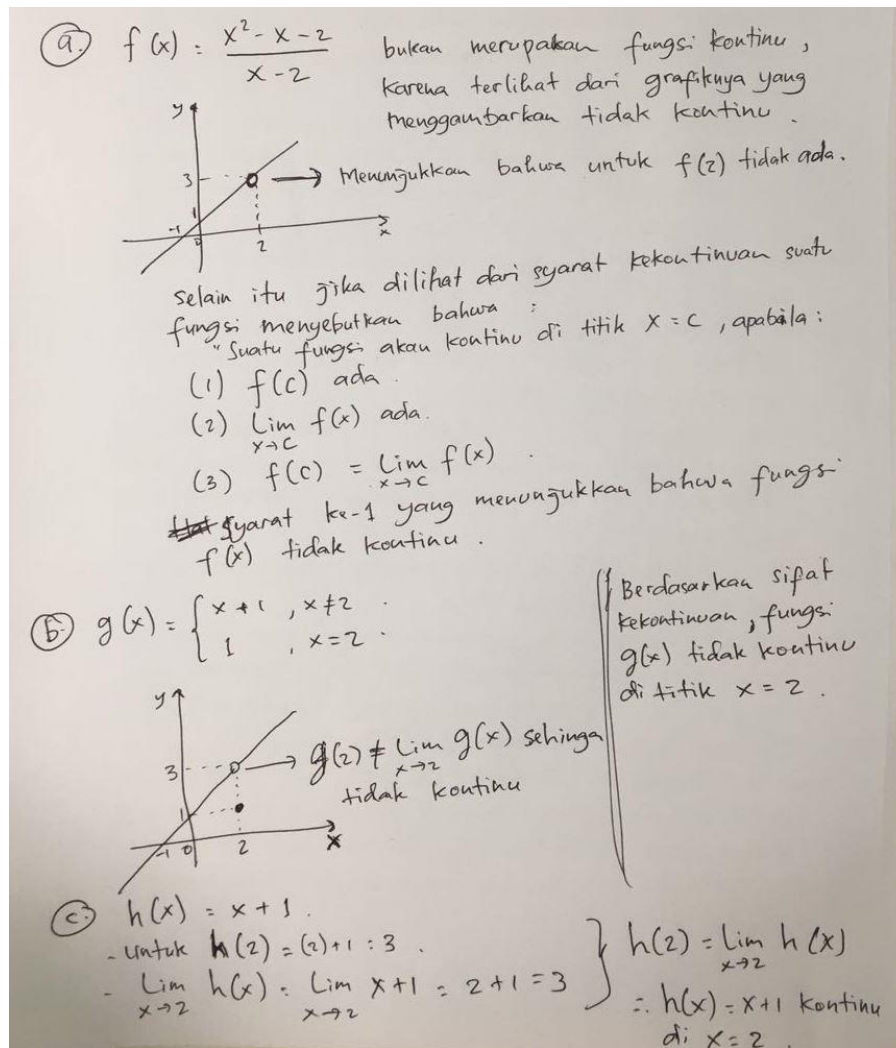 a. f(x) = x² - x - 2 / x - 2 bukan merupakan fungsi kontinu,
karena terlihat dari grafiknya yang
menggambarkan tidak kontinu.
y
3 → Menunjukkan bahwa untuk f(2) tidak ada.
1
-1 0 2 x
selain itu jika dilihat dari syarat kekontinuan suatu
fungsi menyebutkan bahwa :
"Suatu fungsi akan kontinu di titik x = c, apabila :
(1) f(c) ada.
(2) lim x→c f(x) ada.
(3) f(c) = lim x→c f(x).
syarat ke-1 yang menunjukkan bahwa fungsi
f(x) tidak kontinu.
b. g(x) = { x + 1 , x ≠ 2 .
1 , x = 2 .
y
3 → g(2) ≠ lim x→2 g(x) sehinga
tidak kontinu
1
-1 0 2 x
Berdasarkan sifat
kekontinuan, fungsi
g(x) tidak kontinu
di titik x = 2.
c. h(x) = x + 1.
- untuk h(2) = (2)+1 = 3.
- lim x→2 h(x) = lim x→2 x+1 = 2+1 = 3
} h(2) = lim x→2 h(x)
∴ h(x) = x+1 kontinu
di x = 2.